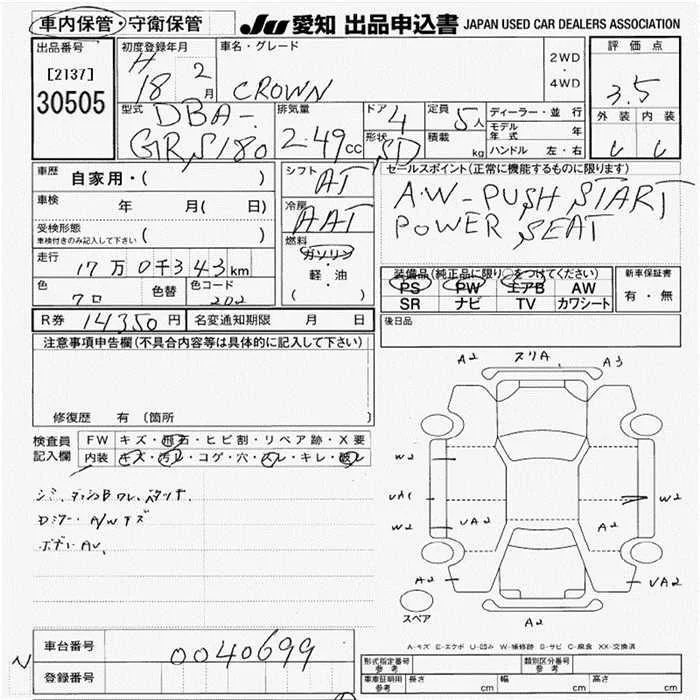 車内保管・守衛保管 JU 愛知 出品申込書 JAPAN USED CAR DEALERS ASSOCIATION
出品番号
[2137]
30505
初度登録年月
H 18 2月
車名・グレード
CROWN
2WD
・
4WD
評価点
3.5
外装 内装
型式
DBA-
GRS180
排気量
2.49cc
ドア 4
形状 SD
定員 5人
積載 kg
ディーラー・並行
モデル年式 年
ハンドル 左・右
車歴 自家用・( )
車検 年 月( 日)
受検形態
車検付きのみ記入して下さい ( )
走行 17万0千343km
色 クロ 色替 色コード 202
シフト AT
冷房 AAC
燃料
ガソリン
軽・油
( )
セールスポイント(正常に機能するものに限ります)
A.W-PUSH START
POWER SEAT
装備品(純正品に限り○をつけてください)
PS PW エアB AW
SR ナビ TV カワシート
新車保証書
有・無
R券 14350円 名変通知期限 月 日
後日品
注意事項申告欄(不具合内容等は具体的に記入して下さい)
修復歴 有 〔箇所
検査員
記入欄
FW キズ・飛石・ヒビ割・リペア跡・X要
内装 キズ・汚レ・コゲ・穴・スレ・キレ・破レ
シミ、ダッシュBワレ、ベタツキ
Dミラー・A/Wキズ
ボデーAU、
A2 スリA, A3
W2
UA1
W2
UA2
A2
W2
A2
UA2
A2
スペア
A-キズ E-エクボ U-凹み W-補修跡 S-サビ C-腐食 XX-交換済
車台番号 0040699
登録番号
N
形式指定番号
参考
類別区分番号
参考
車庫証明用
参考
長さ cm 幅 cm 高さ cm